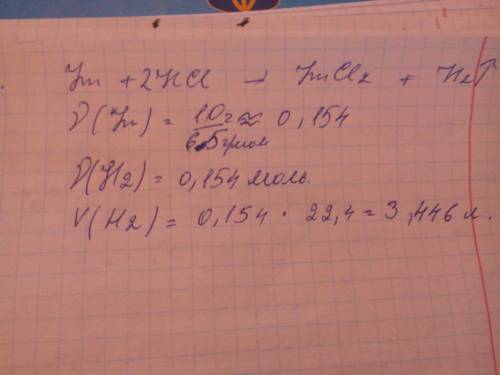 Zn + 2HCl → ZnCl₂ + H₂↑
ν(Zn) = 10г/65г/моль ≈ 0,154
ν(H₂) = 0,154 моль.
V(H₂) = 0,154 · 22,4 = 3,446 л.